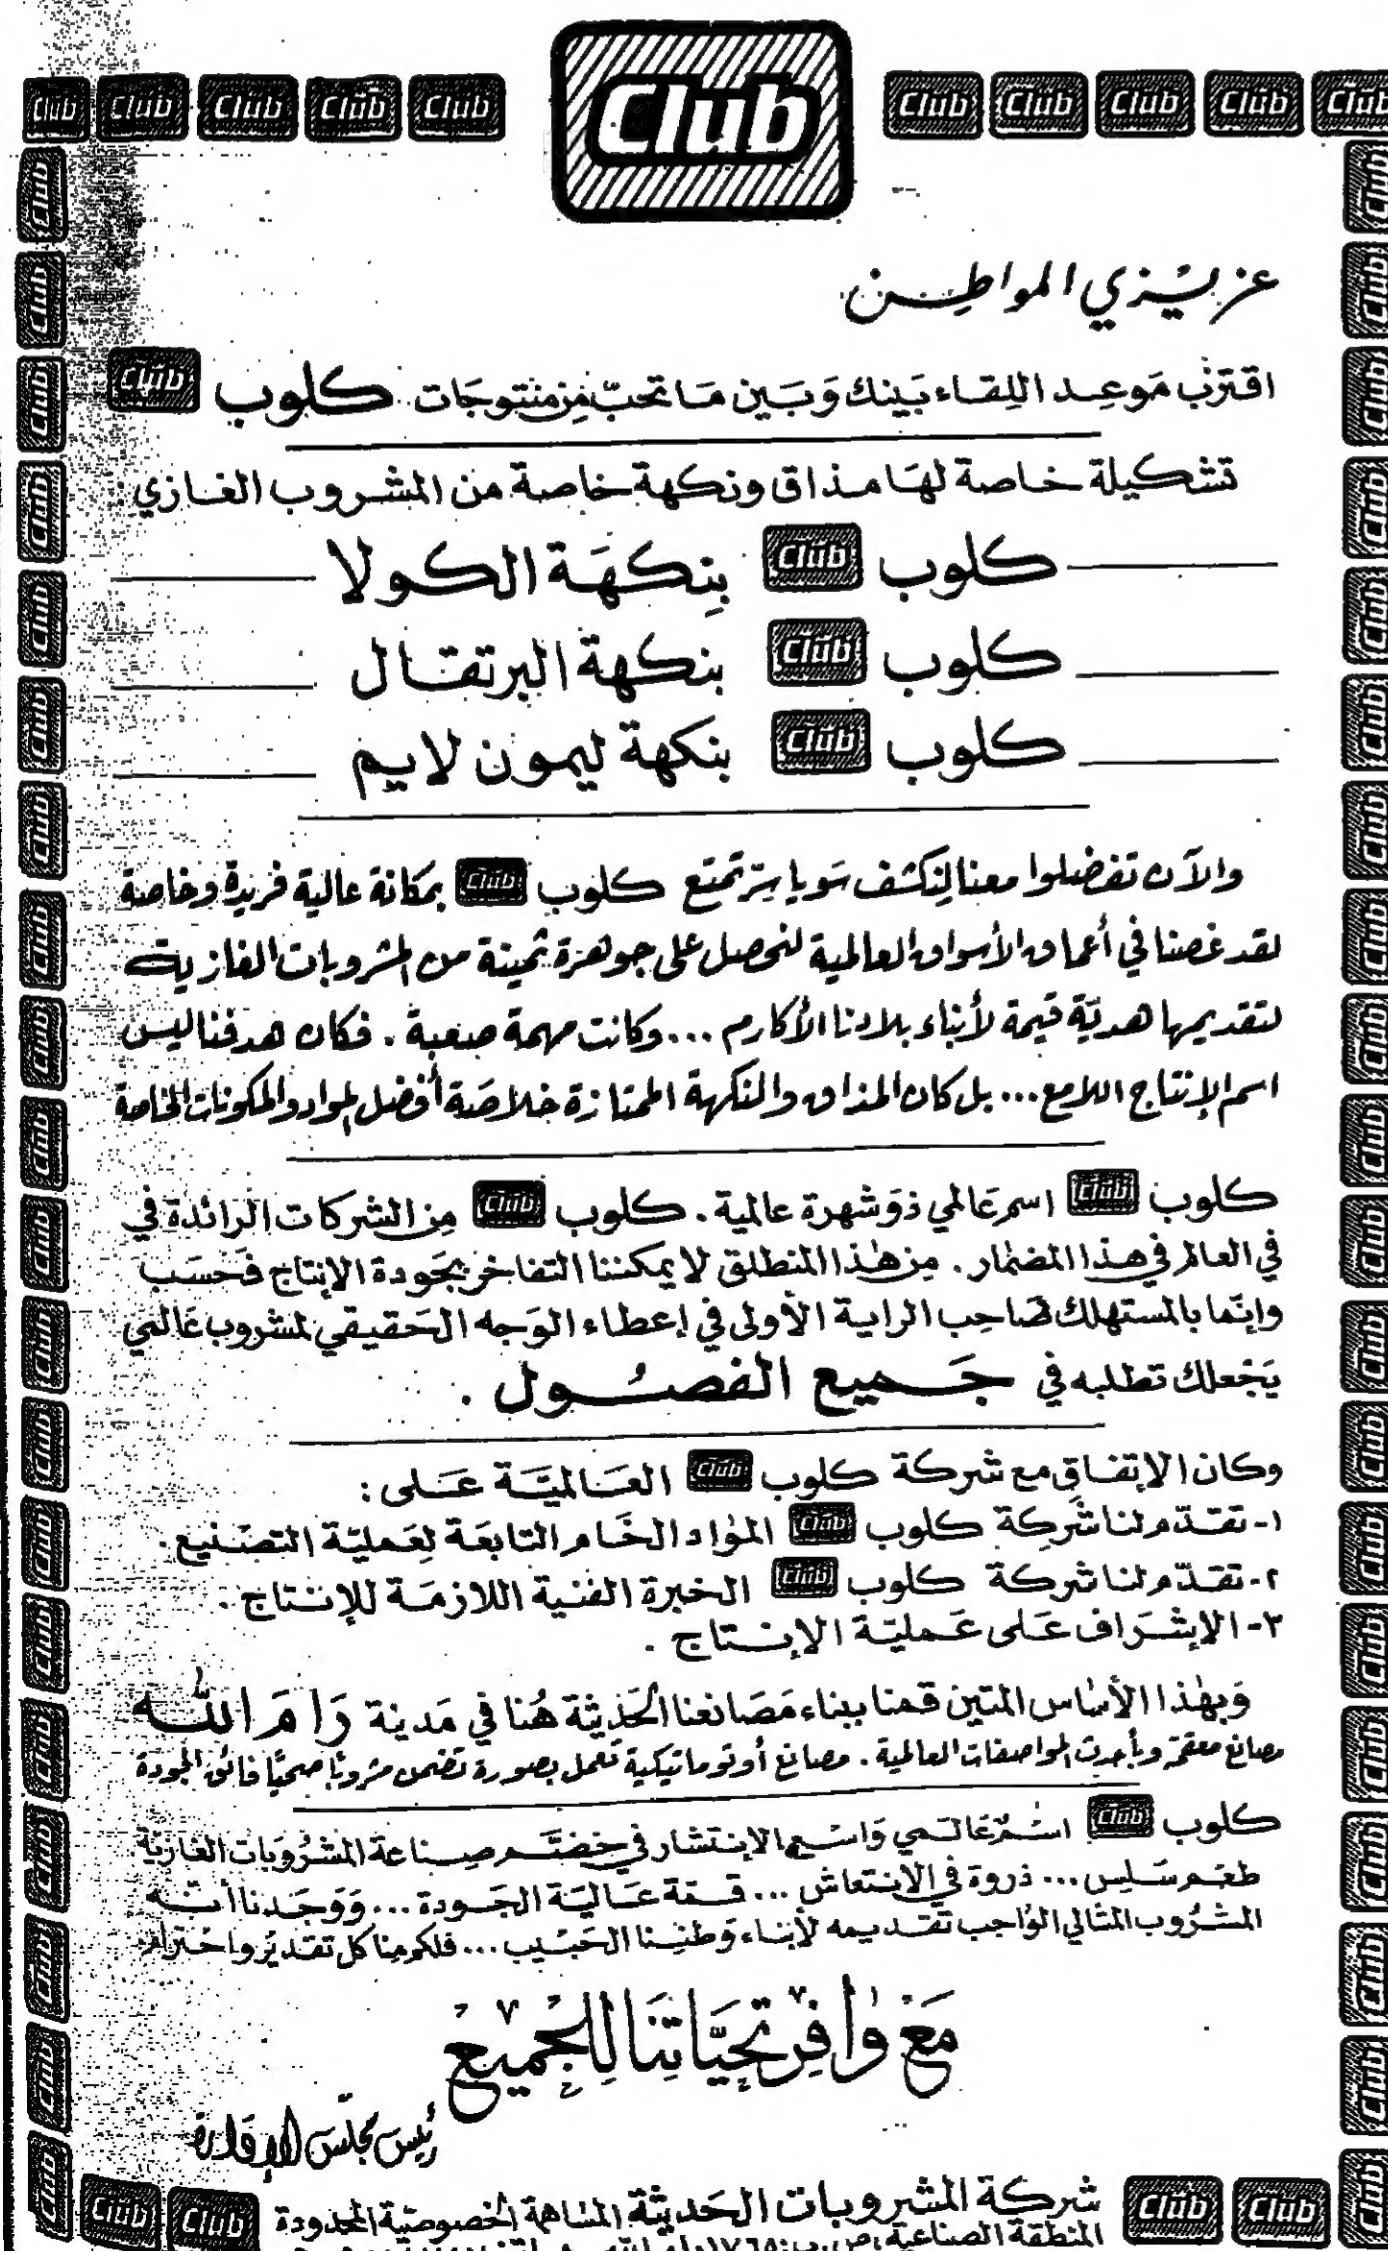 Club Club Club Club Club Club Club Club Club Club
عزيزي المواطن
اقترب موعد اللقاء بينك وبين ما تحب من منتوجات كلوب Club
تشكيلة خاصة لها مذاق ونكهة خاصة من المشروب الغازي
كلوب Club بنكهة الكولا
كلوب Club بنكهة البرتقال
كلوب Club بنكهة ليمون لايم
والآن تفضلوا معنا لنكشف سويا سر تمتع كلوب Club بمكانة عالية فريدة وخاصة
لقد غصنا في أعماق الأسواق العالمية لنحصل على جوهرة ثمينة من المشروبات الغازية
لتقديمها هديّة قيمة لأبناء بلادنا الأكارم ... وكانت مهمة صعبة . فكان هدفنا ليس
اسم الإنتاج اللامع ... بل كان المذاق والنكهة الممتازة خلاصة أفضل المواد والمكونات الخاصة
كلوب Club اسم عالمي ذو شهرة عالمية . كلوب Club من الشركات الرائدة في
في العالم في هذا المضمار . من هذا المنطلق لا يمكننا التفاخر بجودة الإنتاج فحسب
وإنّما بالمستهلك صاحب الراية الأولى في إعطاء الوجه الحقيقي لمشروب عالمي
يجعلك تطلبه في جميع الفصول .
وكان الإتفاق مع شركة كلوب Club العالميّة على :
١- تقدّم لنا شركة كلوب Club المواد الخام التابعة لعمليّة التصنيع .
٢- تقدّم لنا شركة كلوب Club الخبرة الفنية اللازمة للإنتاج .
٣- الإشراف على عمليّة الإنتاج .
وبهذا الأساس المتين قمنا ببناء مصانعنا الحديثة هنا في مدينة رام الله
مصانع معقمة وبأحدث المواصفات العالمية . مصانع أوتوماتيكية تعمل بصورة تضمن مشروبًا صحيًا فائق الجودة
كلوب Club اسم عالمي واسع الإنتشار في خضم صناعة المشروبات الغازية
طعم سلس ... ذروة في الانتعاش ... قمة عالية الجودة ... ووجدنا أنه
المشروب المثالي الواجب تقديمه لأبناء وطننا الحبيب ... فلكم منا كل تقدير واحترام
مع وافر تحياتنا للجميع
رئيس مجلس الإدارة
شركة المشروبات الحديثة المساهمة الخصوصيّة المحدودة
المنطقة الصناعية، ص.ب: ١٧٦٥ رام الله